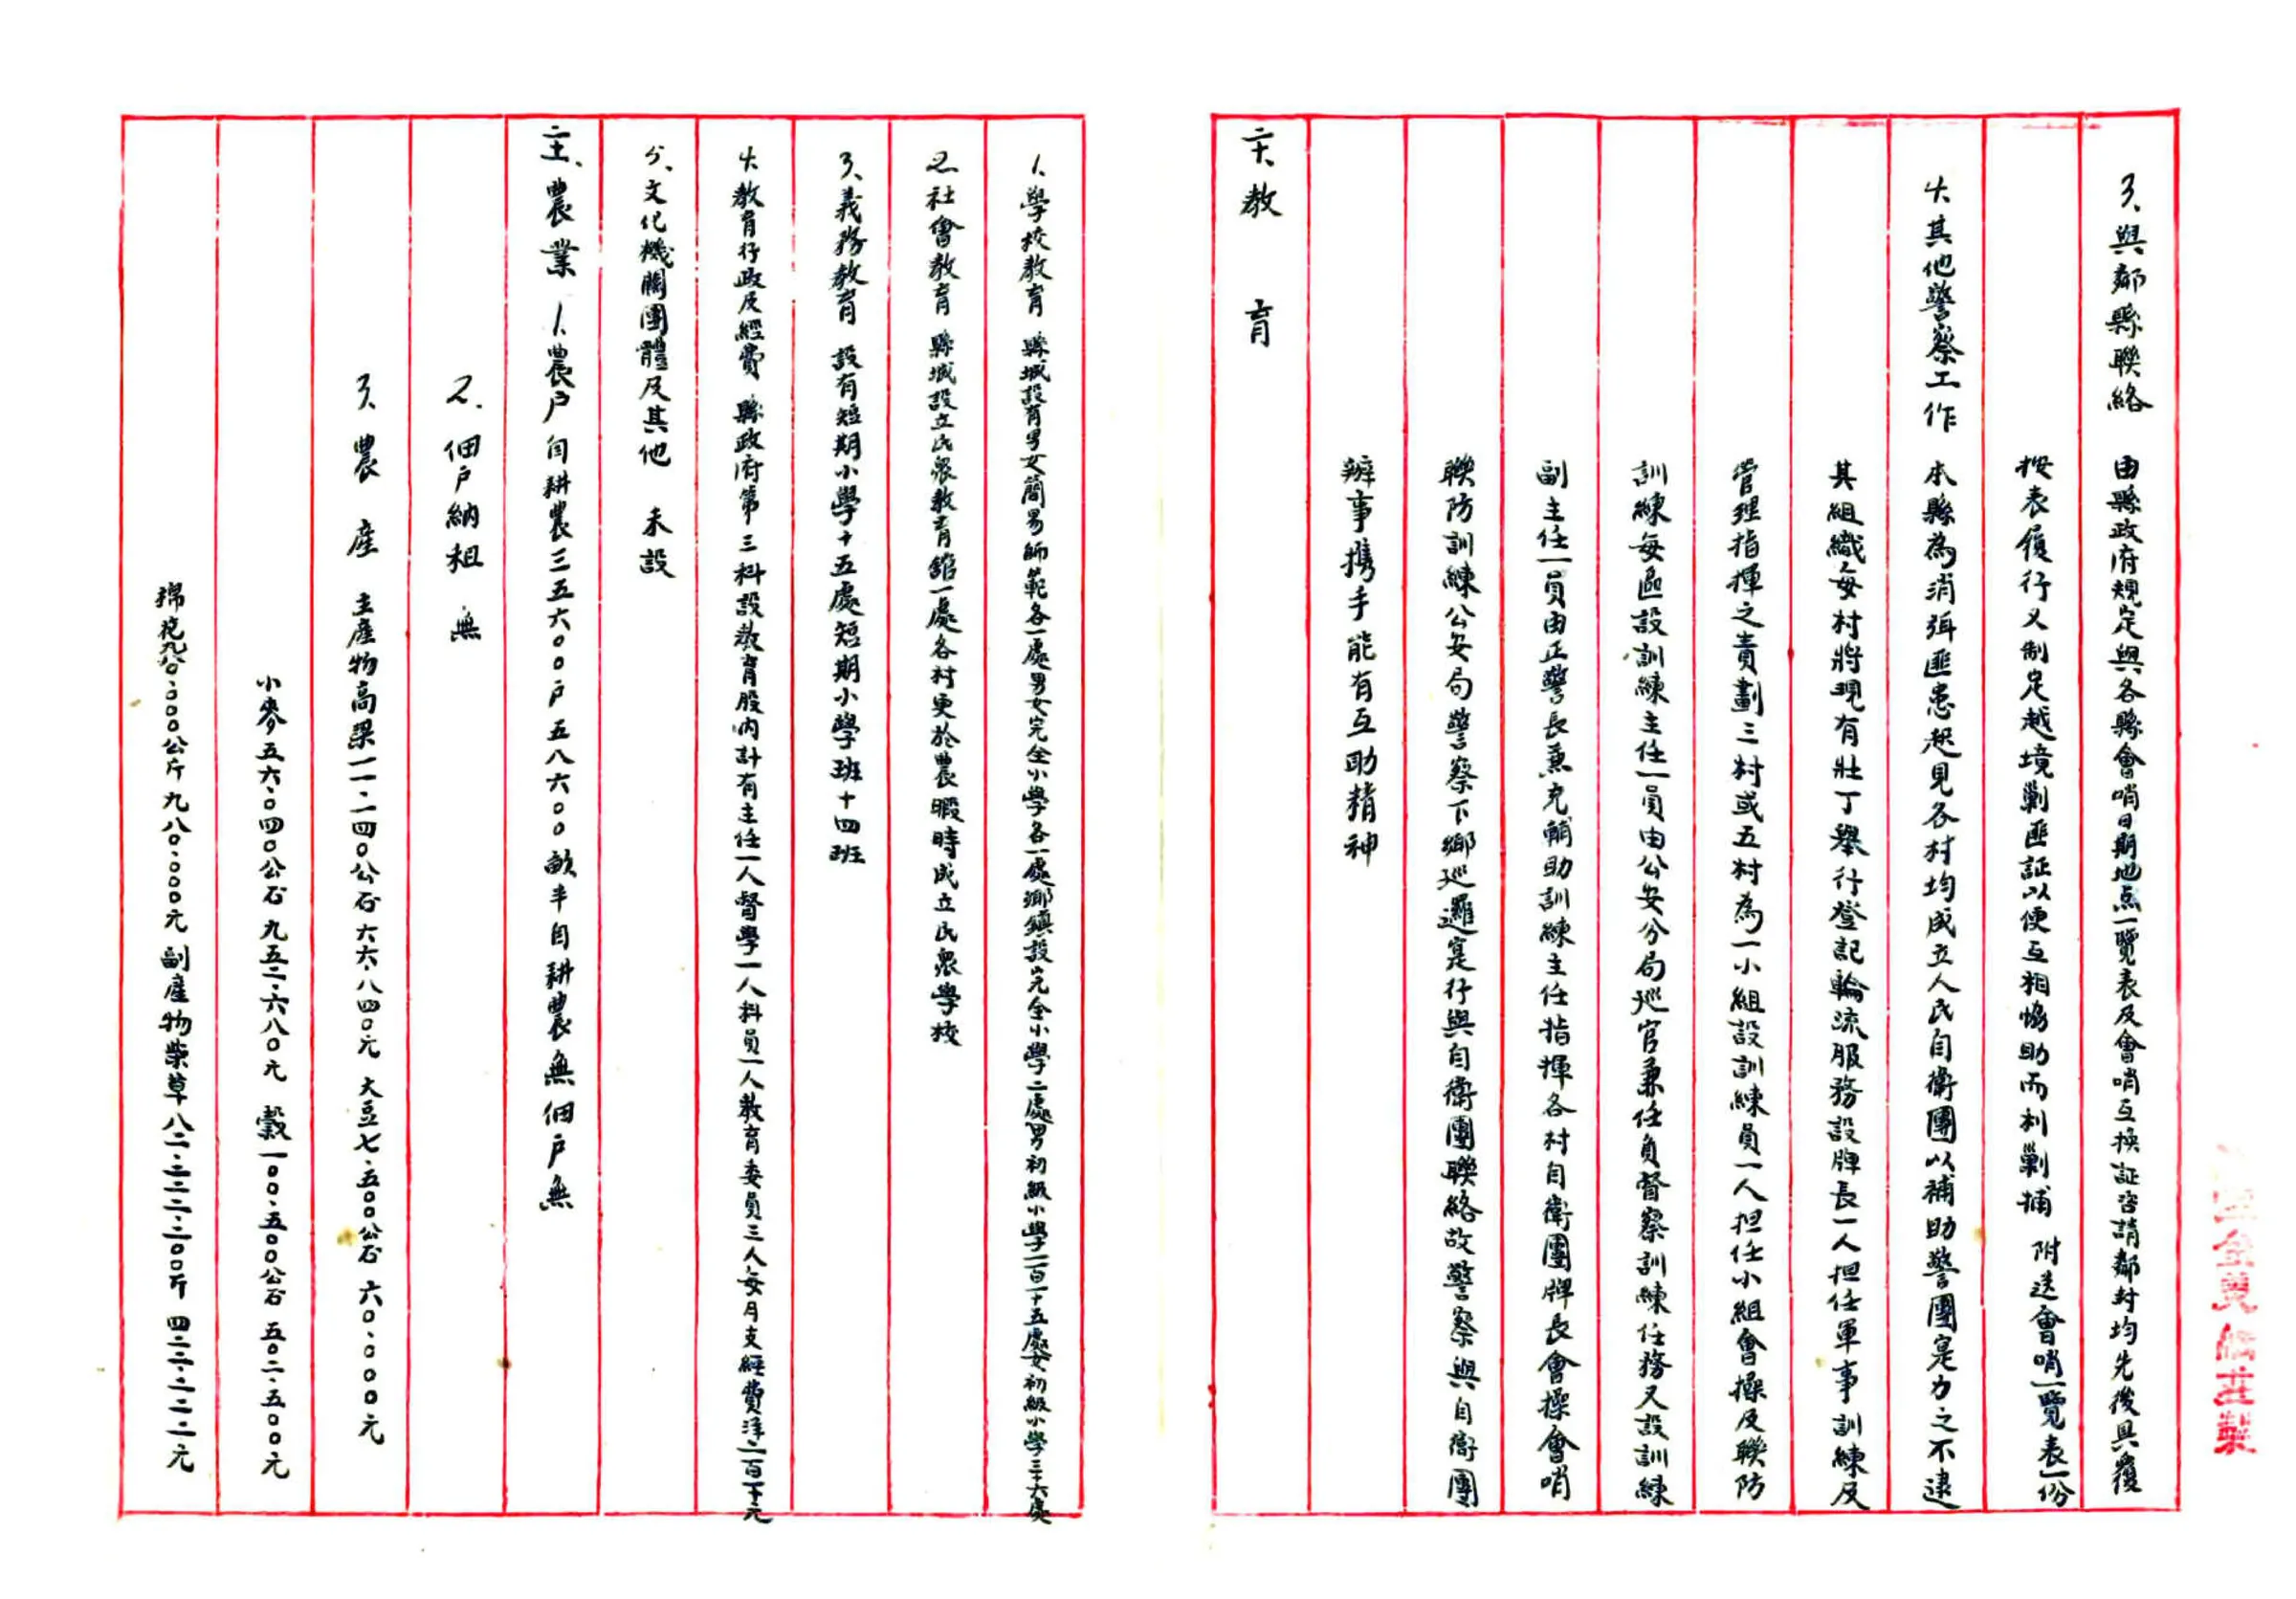 3、與鄰縣聯絡　由縣政府規定與各縣會哨日期地点一覽表及會哨互換証咨請鄰封均先後具覆
按表履行又制定越境剿匪証以便互相協助而利剿捕　附送會哨一覽表一份
4、其他警察工作　本縣為消弭匪患起見各村均成立人民自衛團以補助警團寔力之不逮
其組織每村將現有壯丁舉行登記輪流服務設牌長一人担任軍事訓練及
管理指揮之責劃三村或五村為一小組設訓練員一人担任小組會操及聯防
訓練每區設訓練主任一員由公安分局巡官兼任負督察訓練任務又設訓練
副主任一員由正警長兼充輔助訓練主任指揮各村自衛團牌長會操會哨
聯防訓練公安局警察下鄉巡邏寔行與自衛團聯絡故警察與自衛團
辦事攜手能有互助精神
教　育
1、學校教育　縣城設有男女簡易師範各一處男女完全小學各一處鄉鎮設完全小學二處男初級小學一百一十五處女初級小學三十六處
2、社會教育　縣城設立民眾教育館一處各村更於農暇時成立民眾學校
3、義務教育　設有短期小學十五處短期小學班十四班
4、教育行政及經費　縣政府第三科設教育股內計有主任一人督學一人科員一人教育委員三人每月支經費洋二百一十元
5、文化機關團體及其他　未設
農業　1、農戶　自耕農三五六〇〇戶五八六〇〇畝半自耕農無佃戶無
2、佃戶納租　無
3、農　產　主產物高梁一一・一四〇公石六六・八四〇元　大豆七・五〇〇公石六〇・〇〇〇元
小麥五六・〇四〇公石九五二・六八〇元　穀一〇〇・五〇〇公石五〇二・五〇〇元
棉花　公斤九八〇・〇〇〇元　副產物柴草八二・二二二・二〇〇斤　四　元
製